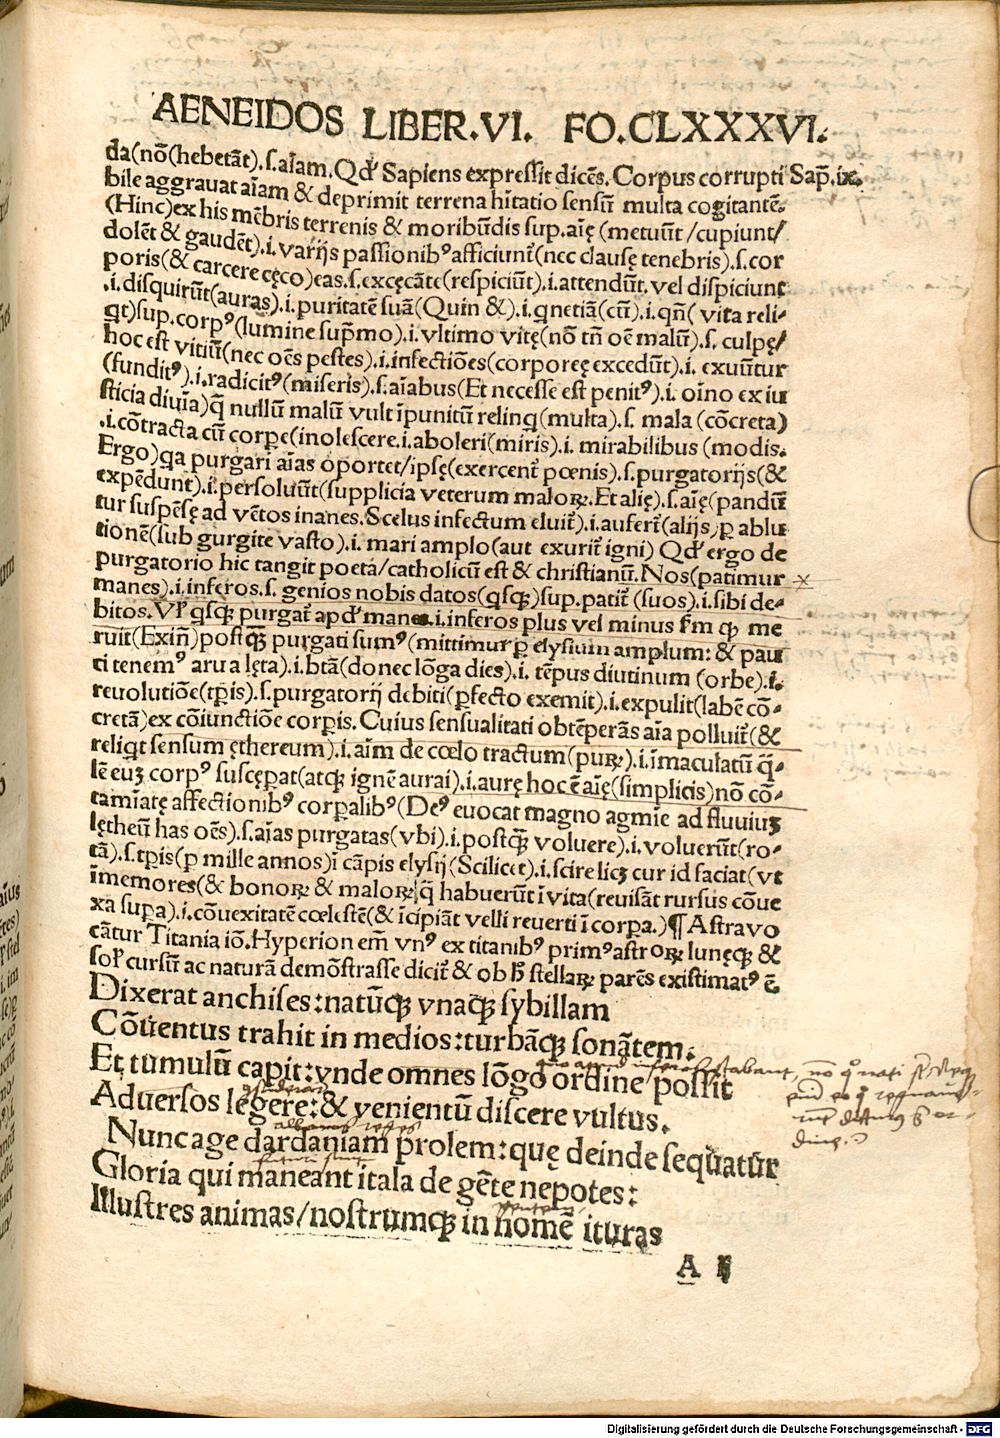 AENEIDOS LIBER.VI. FO.CLXXXVI.
da(nō(hebetāt).s.aīam.Qđ Sapiens expressit dicēs. Corpus corrupti Sap̄.ix.
bile aggrauat aīam & deprimit terrena hītatio sensū multa cogitantē.
(Hinc)ex his mēbris terrenis & moribūdis sup.aīę (metuūt/cupiunt/
dolēt & gaudēt).i.varijs passionibꝰ afficiunt̄(nec clausę tenebris).s.cor
poris(& carcere cęco)eas.s.excęcāte(respiciūt).i.attendūt.vel dispiciunt
.i.disquirūt(auras).i.puritatē suā(Quin &).i.qnetiā(cū).i.qn̄( vita reli-
qt)sup.corpꝰ(lumine sup̄mo).i.vltimo vitę(nō tn̄ oē malū).s. culpę/
hoc est vitiū(nec oēs pestes).i.infectiōes(corporeę excedūt).i. exuūtur
(funditꝰ).i.radicitꝰ(miseris).s.aīabus(Et necesse est penitꝰ).i. oīno ex iu
sticia diuīa)q̄ nullū malū vult īpunitū relinq(multa).s. mala (cōcreta)
.i.cōtracta cū corpe(inolescere.i.aboleri(miris).i. mirabilibus (modis.
Ergo)qa purgari aīas oportet/ipsę(exercent̄ pœnis).s.purgatorijs(&
expēdunt).i.persoluūt(supplicia veterum maloꝝ.Et alię).s.aīę(pandū
tur suspēsę ad vētos inanes.Scelus infectum eluit̄).i.aufert̄(alijs/ꝑ ablu
tionē(sub gurgite vasto).i. mari amplo(aut exurit̄ igni) Qđ ergo de
purgatorio hic tangit poeta/catholicū est & christianū.Nos(patimur
manes).i.inferos.s. genios nobis datos(qsqꝫ)sup.patit̄ (suos).i.sibi de-
bitos. Vꝉ qsqꝫ purgat̄ apđ manes.i.inferos plus vel minus ẜm ꝙ me
ruit(Exīn)postqꝫ purgati sumꝰ(mittimur ꝑ elysium amplum: & pau
ci tenemꝰ arua lęta).i.btā(donec lōga dies).i. tēpus diutinum (orbe).i.
reuolutiōe(tꝑis).s.purgatorij debiti(ꝑfecto exemit).i.expulit(labē cō-
cretā)ex cōiunctiōe corꝑis. Cuius sensualitati obtēperās aīa polluit̄(&
reliqt sensum ęthereum).i.aīm de cœlo tractum(puꝝ).i.īmaculatū q̄-
lē euꝫ corpꝰ suscęꝑat(atqꝫ ignē aurai).i.aurę hoc ē aīę(simplicis)nō cō-
tamīatę affectionibꝰ corꝑalibꝰ(Deꝰ euocat magno agmīe ad fluuiuꝫ
lętheū has oēs).s.aīas purgatas(vbi).i.postqꝫ voluere).i.voluerūt(ro-
tā).s.tꝑis(ꝑ mille annos)ī cāpis elysij(Scilicet).i.scire licꝫ cur id faciat(vt
īmemores(& bonoꝝ & maloꝝ/q̄ habuerūt ī vita(reuisāt rursus cōue
xa suꝑa).i.cōuexitatē cœlestē(& īcipiāt velli reuerti ī corꝑa.)¶ Astra vo
cātur Titania iō.Hyperion em̄ vnꝰ ex titanibꝰ primꝰ astroꝝ lunęqꝫ &
solꝉ cursū ac naturā demōstrasse dicit̄ & ob ħ stellaꝝ parēs existimatꝰ ē.
Dixerat anchises:natūqꝫ vnaqꝫ sybillam
Cōuentus trahit in medios:turbāqꝫ sonātem.
Et tumulū capit:vnde omnes lōgo ordine possit
Aduersos legere:& venientū discere vultus.
Nunc age dardaniam prolem:quę deinde sequātūr
Gloria qui maneant itala de gēte nepotes:
Illustres animas/nostrumqꝫ in nomē ituras
A ij
Digitalisierung gefördert durch die Deutsche Forschungsgemeinschaft - DFG